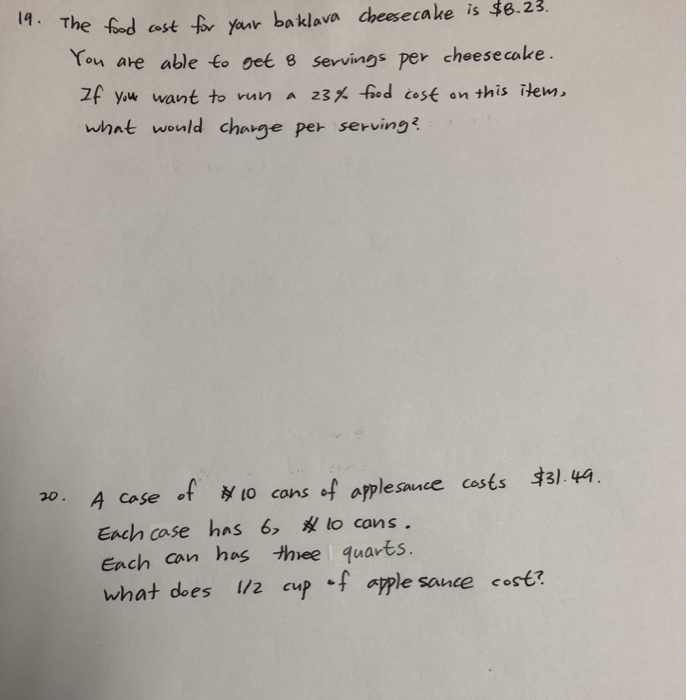 19. The food cost for your baklava cheesecake is $8.23.
You are able to get 8 servings per cheesecake.
If you want to run a 23% food cost on this item,
what would charge per serving?
20. A case of #10 cans of applesauce costs $31.49.
Each case has 6, #10 cans.
Each can has three quarts.
what does 1/2 cup of apple sauce cost?